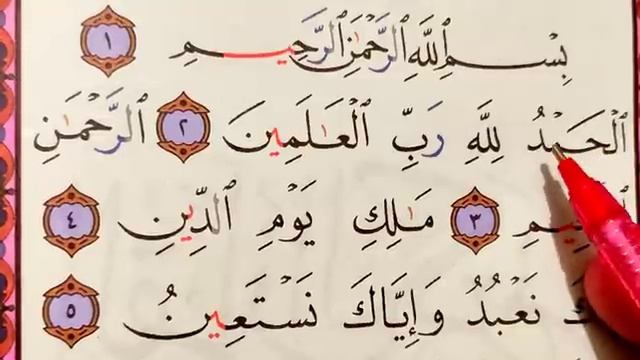 بِسْمِ ٱللَّهِ ٱلرَّحْمَٰنِ ٱلرَّحِيمِ ١
ٱلْحَمْدُ لِلَّهِ رَبِّ ٱلْعَٰلَمِينَ ٢ ٱلرَّحْمَٰنِ
مَٰلِكِ يَوْمِ ٱلدِّينِ ٤ ٣
نَعْبُدُ وَإِيَّاكَ نَسْتَعِينُ ٥